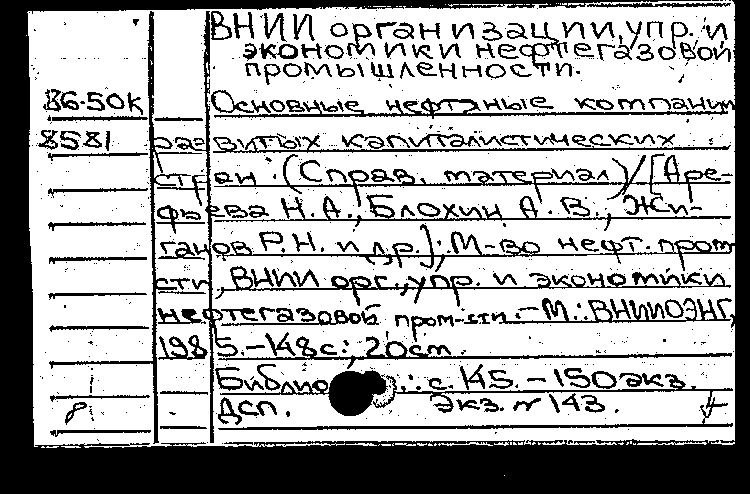 ВНИИ организации, упр. и
экономики нефтегазовой
промышленности.
86-50к Основные нефтяные компании
8581 развитых капиталистических
стран : (Справ. материал) / [Аре-
фьева Н.А., Блохин А.В., Жи-
ганов Р.Н. и др.]; М-во нефт. пром-
сти, ВНИИ орг., упр. и экономики
нефтегазовой пром-сти. - М.: ВНИИОЭНГ,
1985. - 148 с.; 20 см.
с. 145. - 150 экз.
ДСП. Экз. № 143.